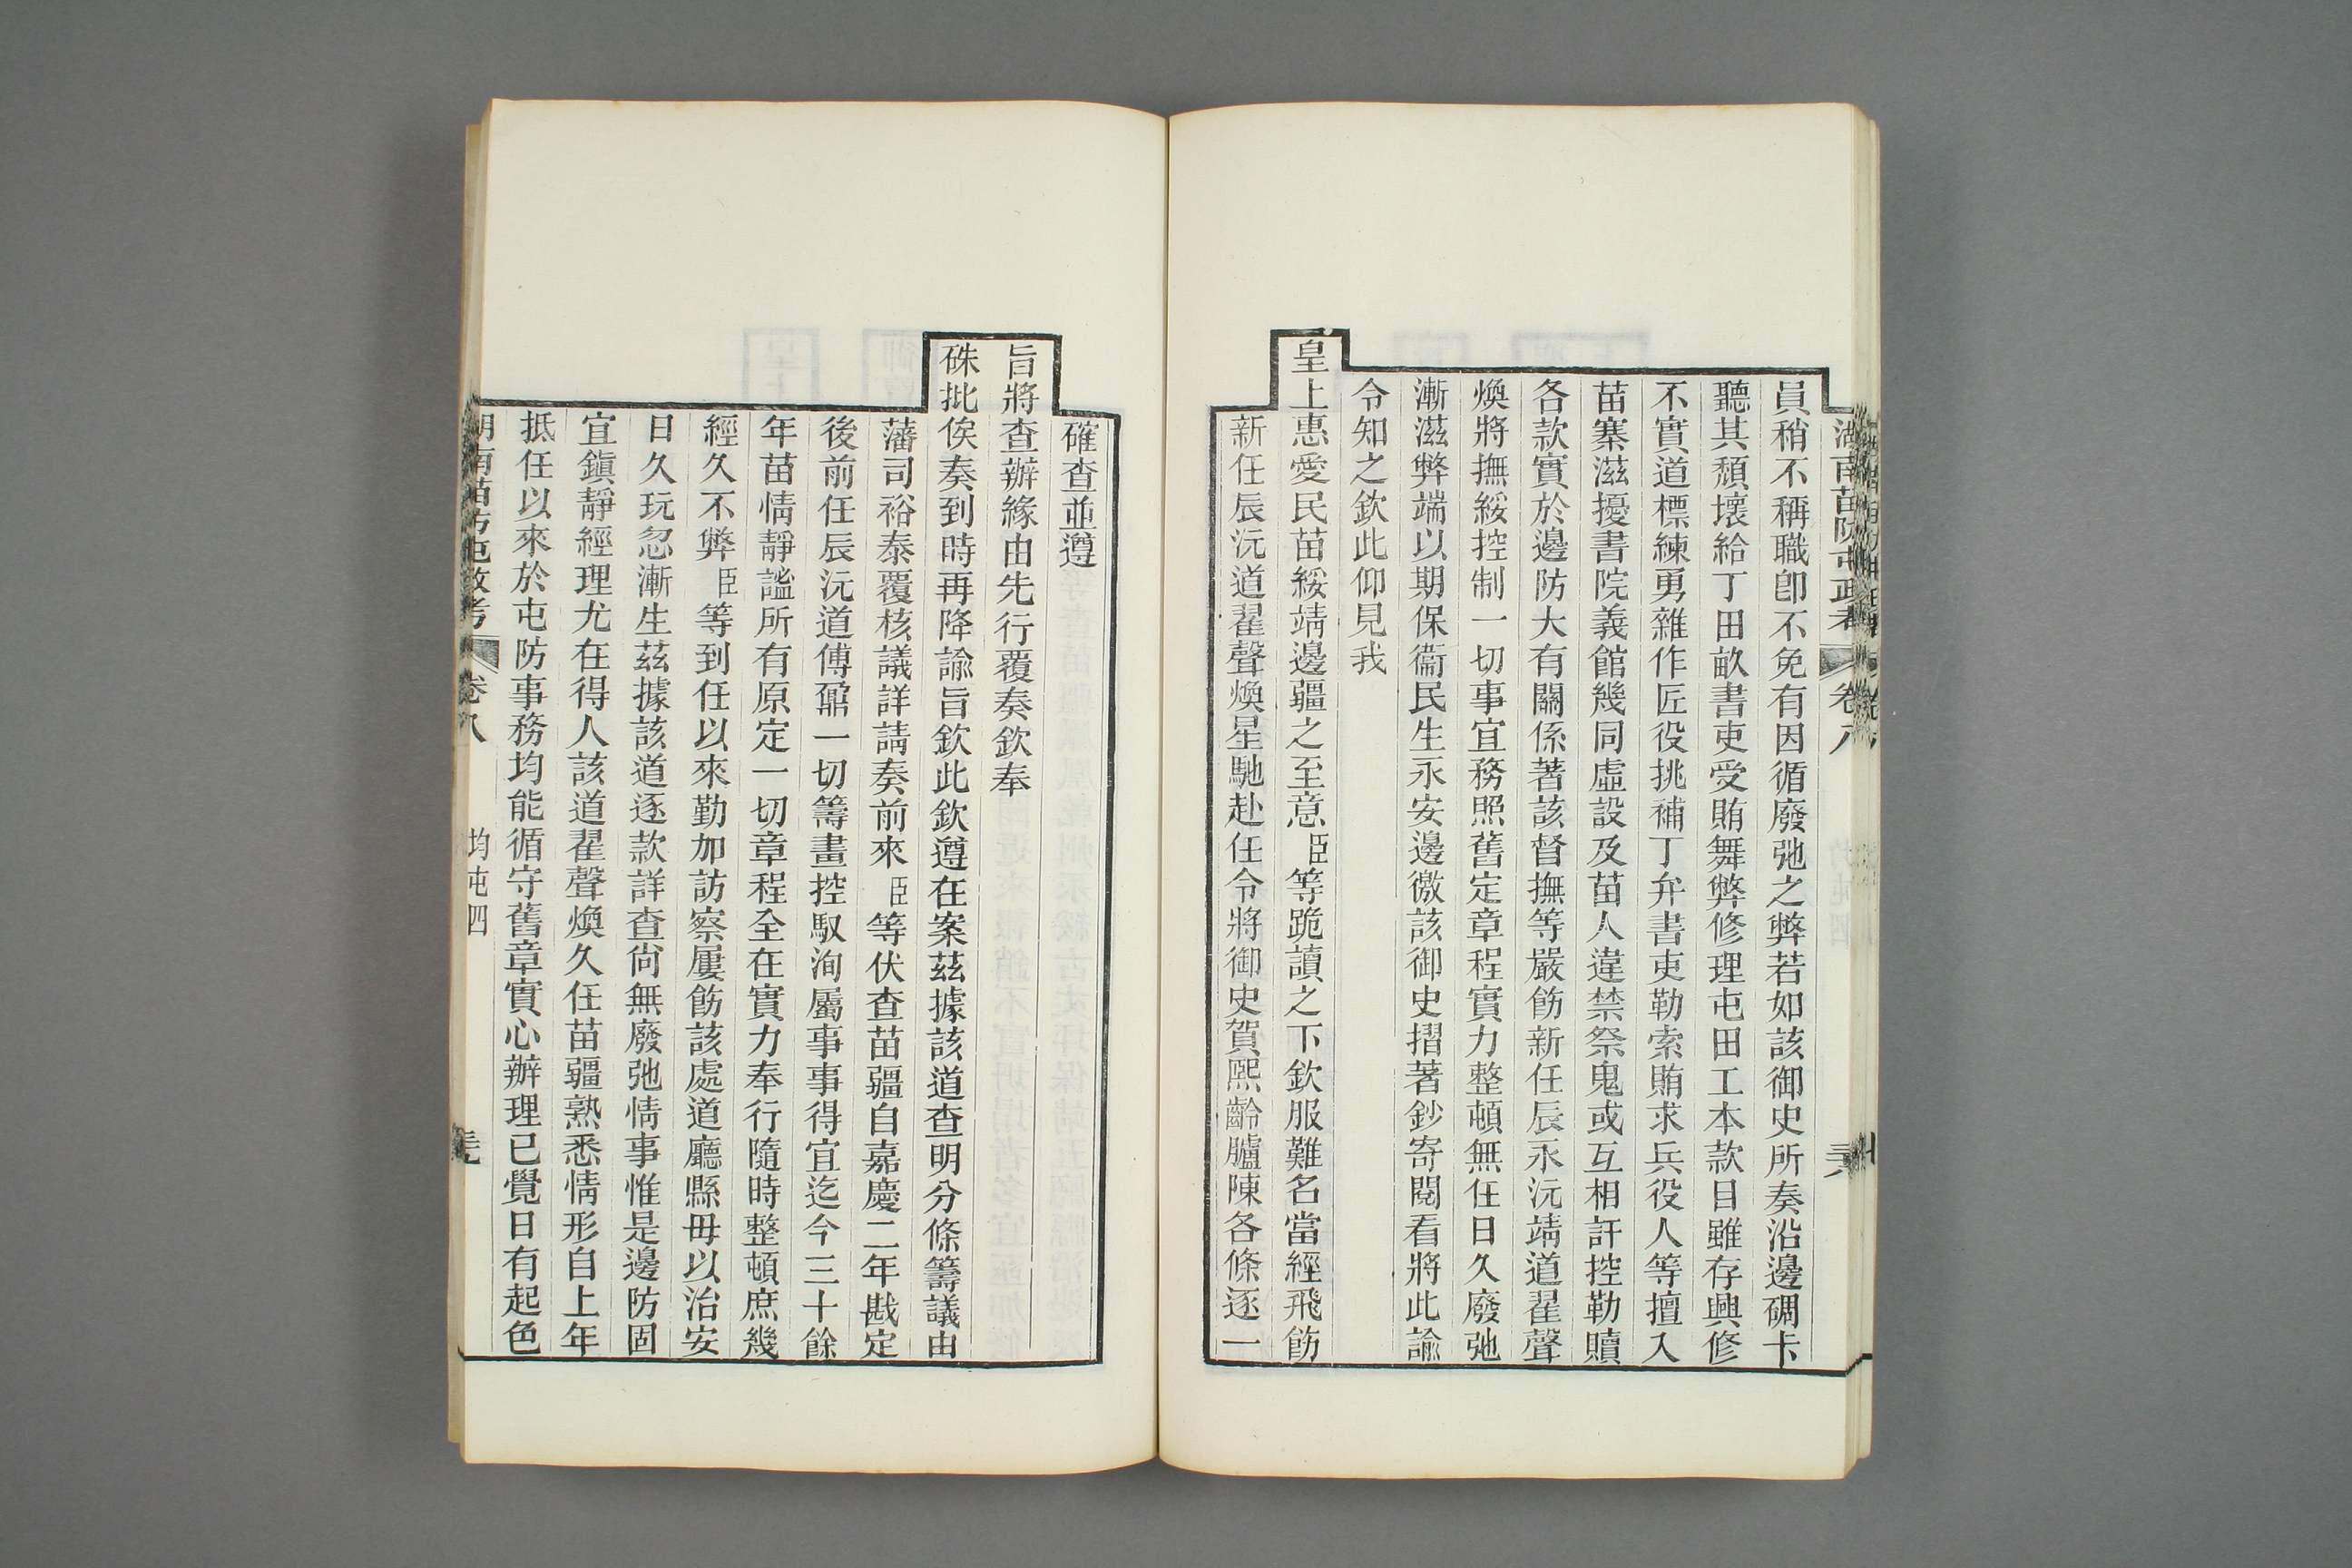 湖南苗防屯政考 卷八
員稍不稱職卽不免有因循廢弛之弊若如該御史所奏沿邊碉卡
聽其頹壞給丁田畝書吏受賄舞弊修理屯田工本款目雖存興修
不實道標練勇雜作匠役挑補丁弁書吏勒索賄求兵役人等擅入
苗寨滋擾書院義館幾同虛設及苗人違禁祭鬼或互相訐控勒贖
各款實於邊防大有關係著該督撫等嚴飭新任辰永沅靖道翟聲
煥將撫綏控制一切事宜務照舊定章程實力整頓無任日久廢弛
漸滋弊端以期保衞民生永安邊徼該御史摺著鈔寄閱看將此諭
令知之欽此仰見我
皇上惠愛民苗綏靖邊疆之至意臣等跪讀之下欽服難名當經飛飭
新任辰沅道翟聲煥星馳赴任令將御史賀熙齡臚陳各條逐一
確查並遵
旨將查辦緣由先行覆奏欽奉
硃批俟奏到時再降諭旨欽此欽遵在案茲據該道查明分條籌議由
藩司裕泰覆核議詳請奏前來臣等伏查苗疆自嘉慶二年戡定
後前任辰沅道傅鼐一切籌畫控馭洵屬事事得宜迄今三十餘
年苗情靜謐所有原定一切章程全在實力奉行隨時整頓庶幾
經久不弊臣等到任以來勤加訪察屢飭該處道廳縣毋以治安
日久玩忽漸生茲據該道逐款詳查尙無廢弛情事惟是邊防固
宜鎭靜經理尤在得人該道翟聲煥久任苗疆熟悉情形自上年
抵任以來於屯防事務均能循守舊章實心辦理已覺日有起色
湖南苗防屯政考 卷八 均屯四